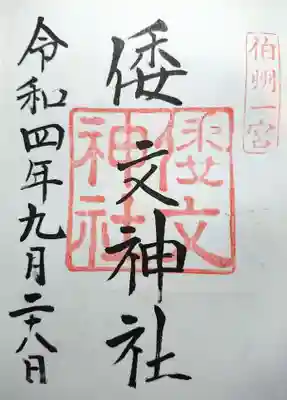 伯州一宮
倭文神社
倭文神社
令和四年九月二十八日